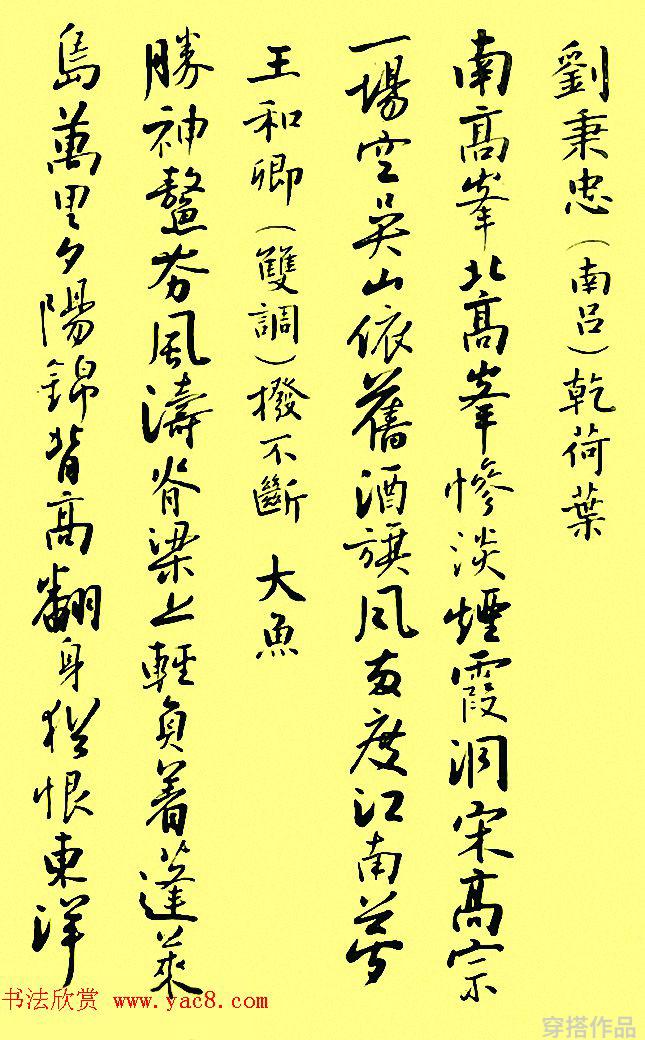 劉秉忠(南呂)乾荷葉
南高峯北高峯慘淡煙霞洞宋高宗
一場空吴山依舊酒旗風两度江南夢
王和卿(雙調)撥不斷 大魚
勝神鰲夯風濤脊梁上輕負着蓬萊
島萬里夕陽錦背高翻身猶恨東洋
书法欣赏 www.yac8.com
穿搭作品